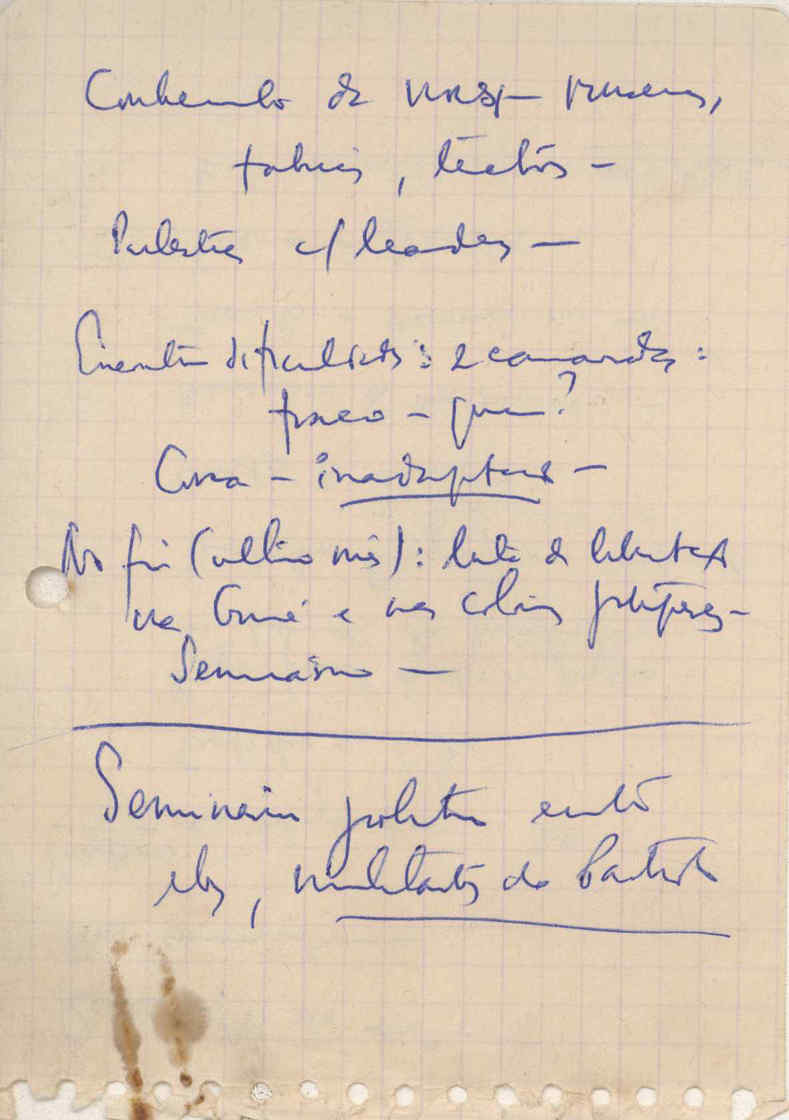 Conhecimento da URSS — museus,
fabricas, teatros —
Palestras c/ leaders —
dificuldades: 2 camaradas:
fraco — quem?
— inadaptad —
No fim (ultimo mês): luta de libertação
na Guiné e nas colonias portuguesas —
Seminário —
Seminario politico entre
eles, militantes do Partido